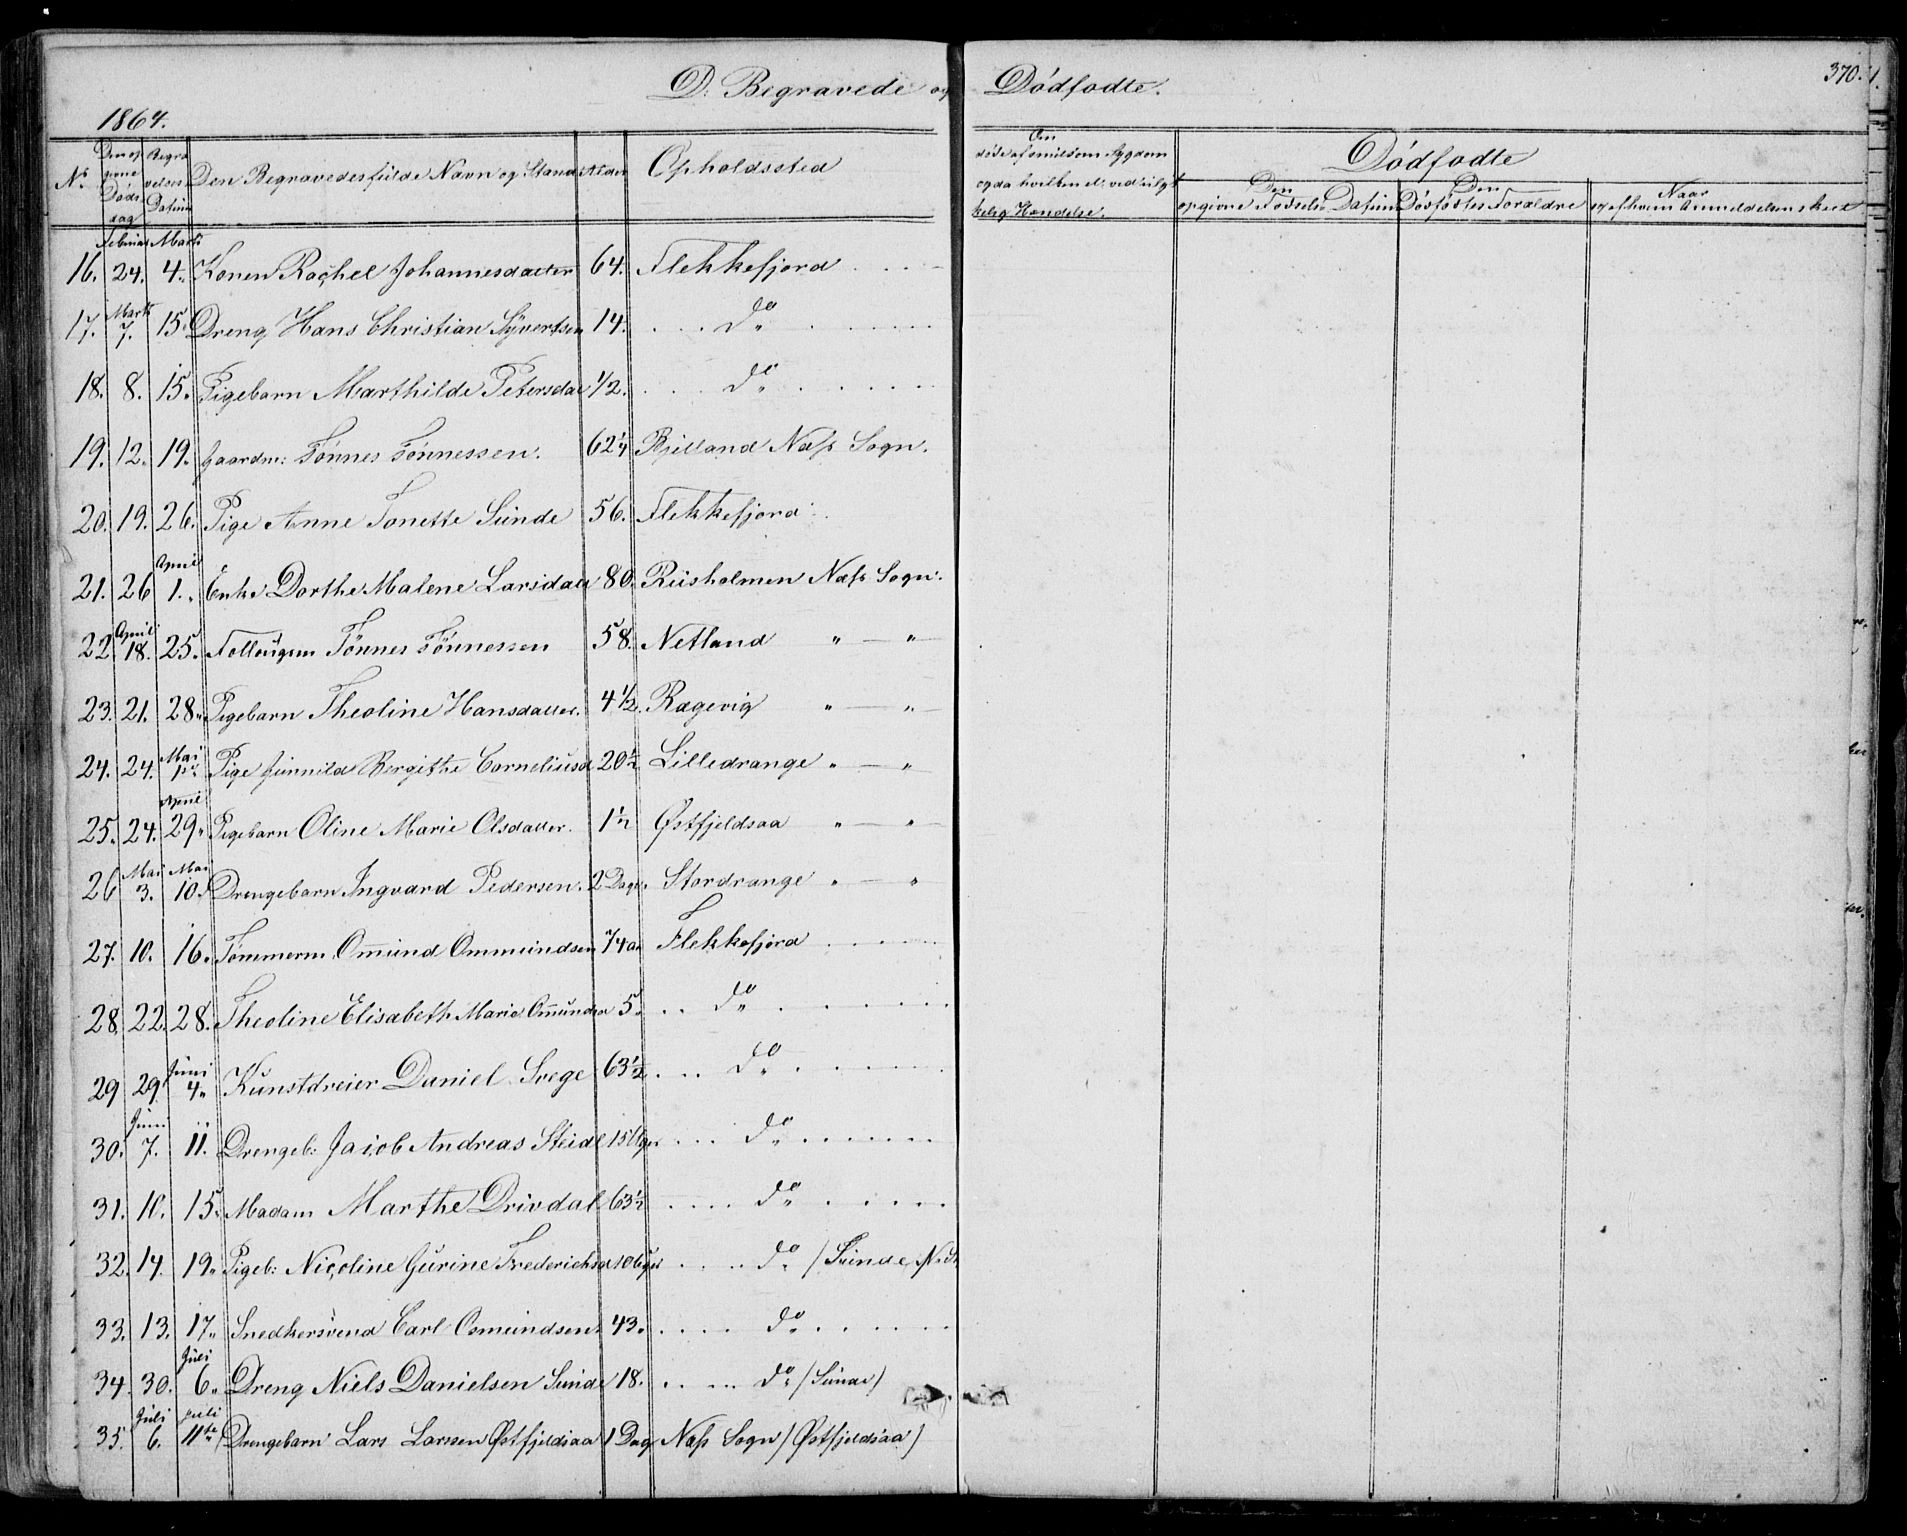 D. Begravede og Dödfødte.
370.
1864.
No Den opgivne Dödsdag Begravelses Datum Den Begravedes fulde Navn og Stand Alder Opholdssted
Om död af smitsom Sygdom og da hvilken el. ved ulykkelig Hændelse.
Dödfødte
Den opgivne Fødsels Datum Den Dödfödtes Forældre Naar og af hvem Anmeldelsen skeet
Februar Marts
16. 24. 4. Konen Rachel Johannesdatter 64. Flekkefjord
Marts
17. 7. 15. Dreng Hans Christian Syvertsen 14. do
18. 8. 15. Pigebarn Marthilde Petersdat 1/2. do
19. 12. 19. Gaardm: Tönnes Tönnessen. 62 1/4 Næss Sogn.
20. 19. 26. Pige Anne Tonette Sunde 56. Flekkefjord
April
21. 26 1. Enke Dorthe Malene Larsdatt 80. Riisholmen Næss Sogn.
April
22. 18. 25. Tönnes Tönnessen 58. Netland " — "
23. 21. 28. Pigebarn Theoline Hansdatter. 4 1/2. Rægevig " — "
Mai
24. 24. 1. Pige Gunnild Bergithe Corneliusd 20 1/2 Lilledrange " — "
April
25. 24. 29. Pigebarn Oline Marie Olsdatter. 1 1/2 Østfjeldsaa " — "
Mai Mai
26 3. 10. Drengebarn Ingvard Pedersen. 2 Dage Stordrange " — "
27. 10. 16. Tömmerm. Omund Ommundsen 74 Flekkefjord
28. 22. 28. Theoline Elisabeth Marie Omunds 5. do
Juni
29 29. 4. Kunstdreier Daniel Svege 63 1/2 do
Juni
30. 7. 11. Drengeb: Jacob Andreas Steidl 15 Uger do
31. 10. 15. Madam Marthe Drivdal 63 1/2 do
32. 14. 19. Pigeb: Nicoline Gurine Frederichsd 10 Uger do / Sunde
33. 13. 17. Snedkersvend Carl Osmundsen. 43. do
Juli
34. 30. 6. Dreng Niels Danielsen Sunde 18. do / Sunde /
Juli Juli
35. 6. 11te Drengebarn Lars Larssen Østfjeldsaa 1 Dag Næss Sogn / Østfjeldsaa /